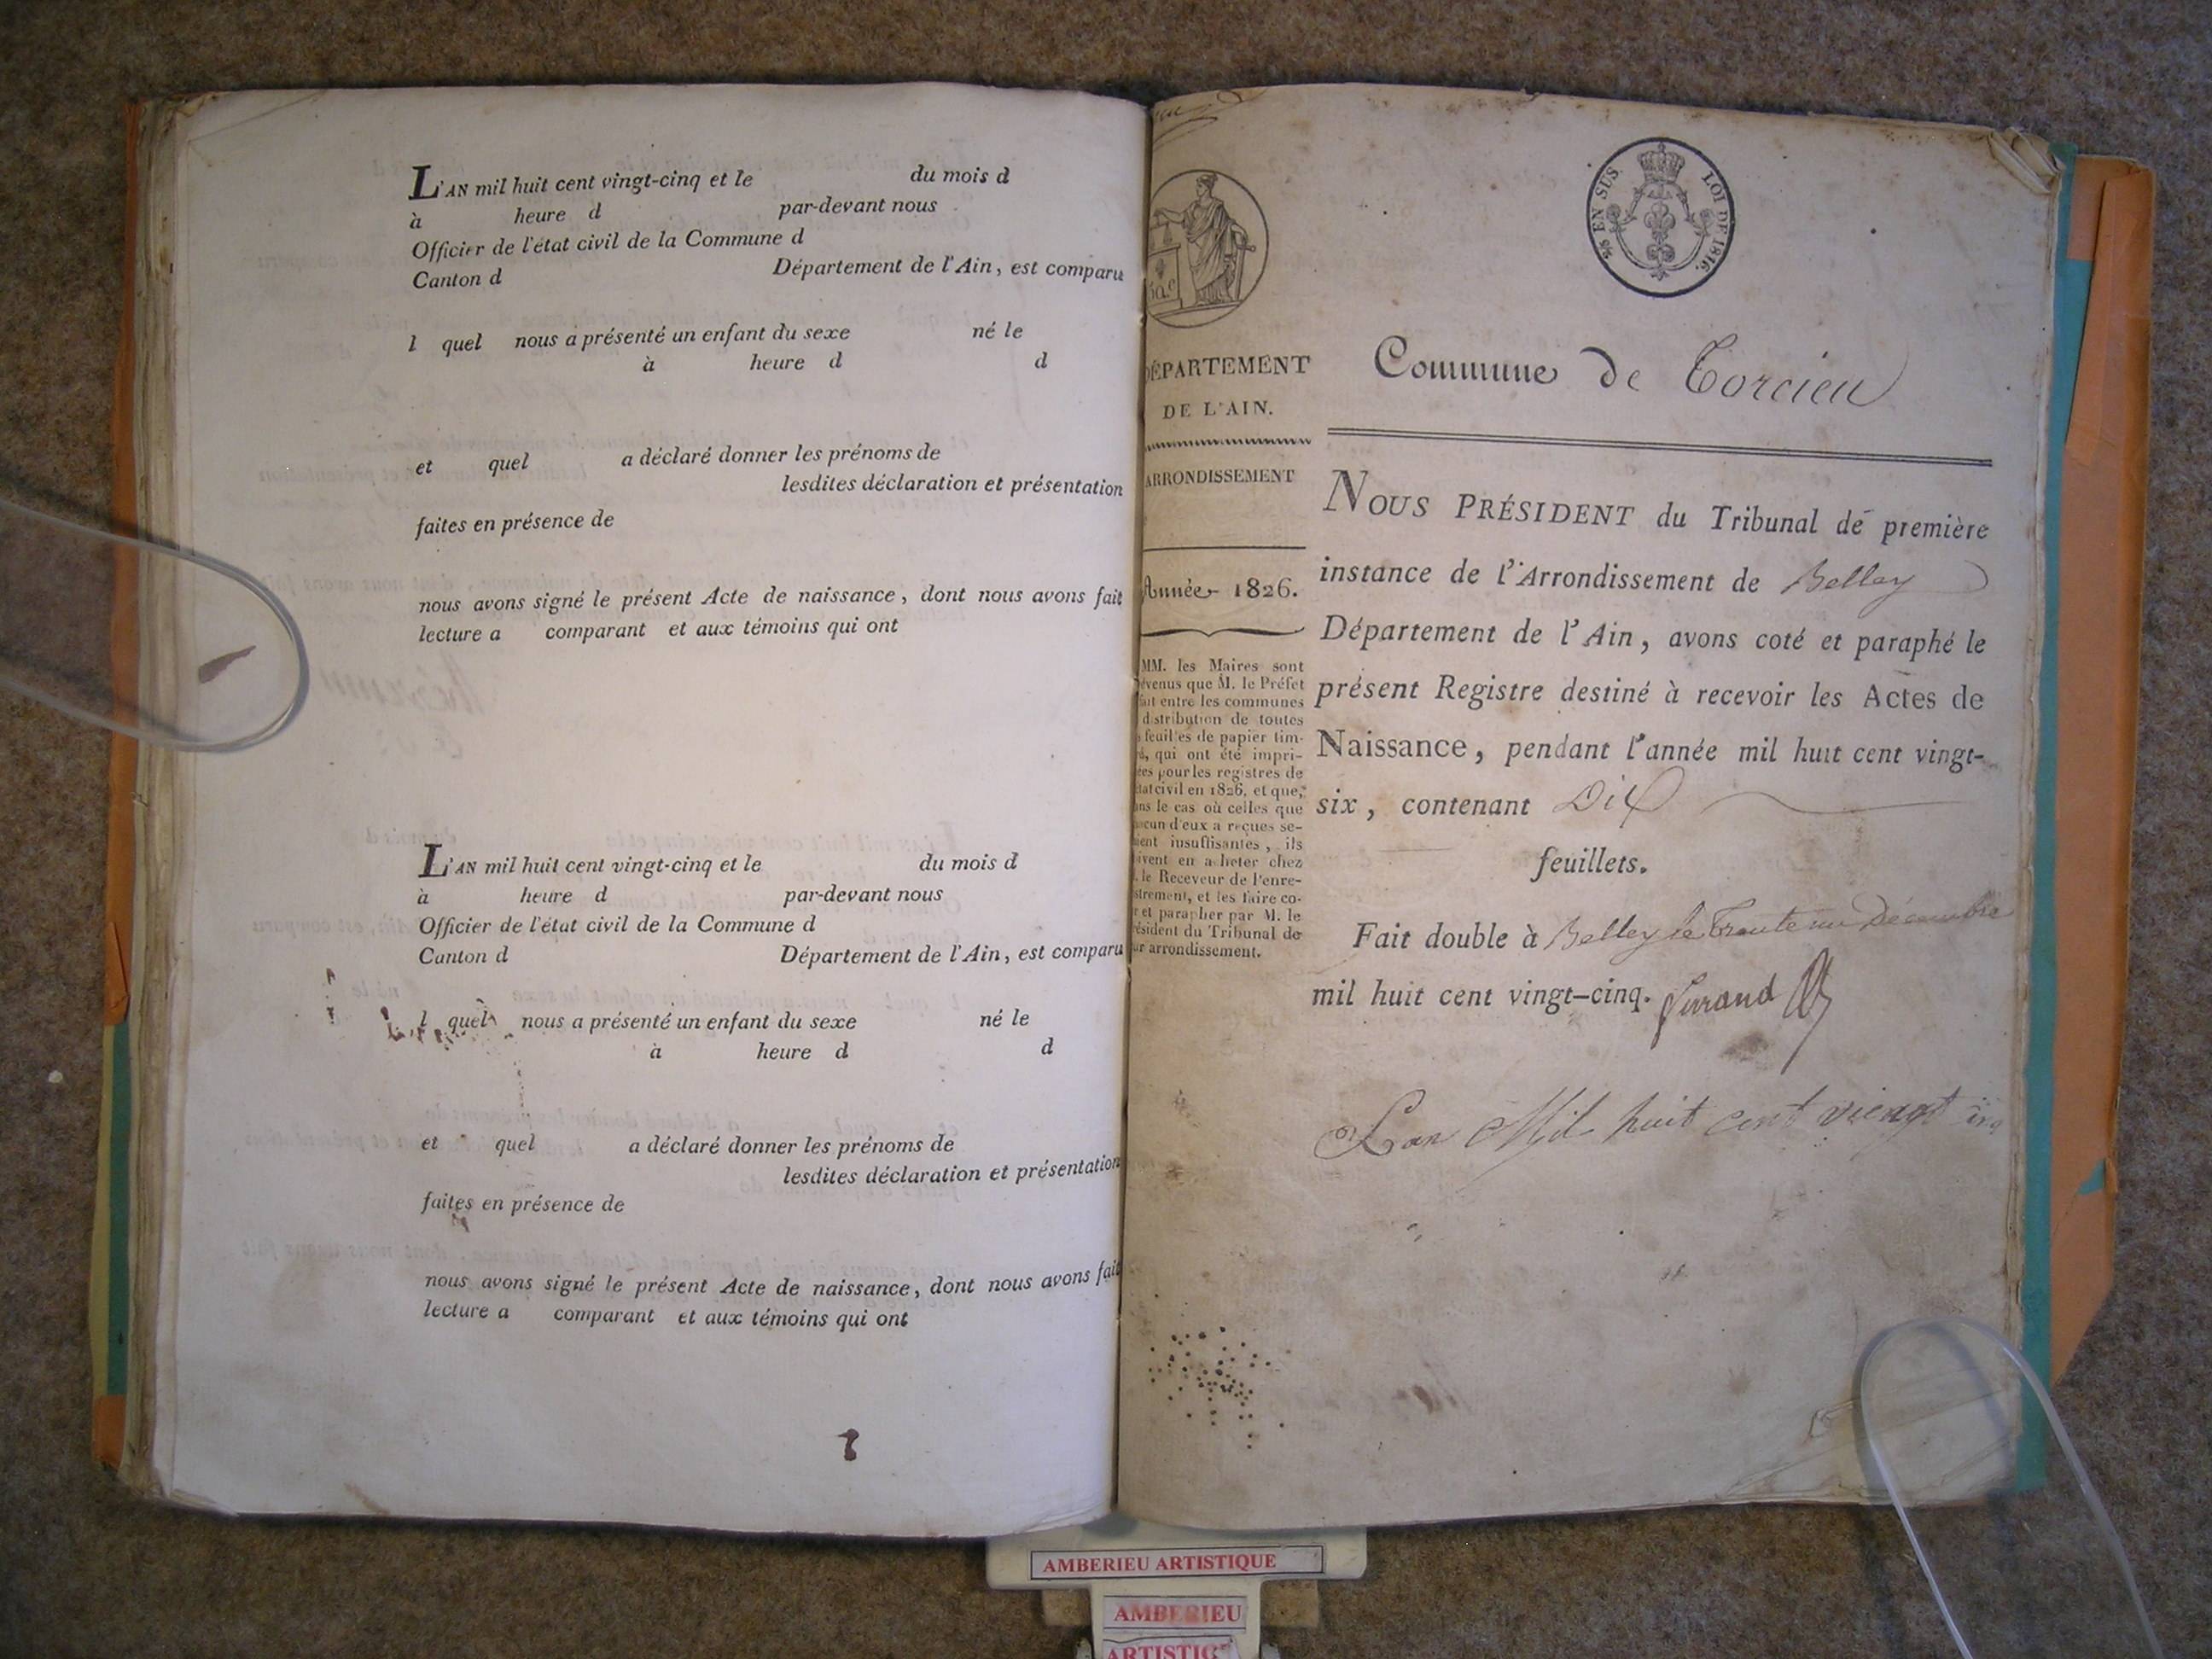 L'AN mil huit cent vingt-cinq et le du mois d
à heure d par-devant nous
Officier de l'état civil de la Commune d
Canton d Département de l'Ain, est comparu
l quel nous a présenté un enfant du sexe né le
à heure d d
et quel a déclaré donner les prénoms de
lesdites déclaration et présentation
faites en présence de
nous avons signé le présent Acte de naissance, dont nous avons fait
lecture a comparant et aux témoins qui ont
L'AN mil huit cent vingt-cinq et le du mois d
à heure d par-devant nous
Officier de l'état civil de la Commune d
Canton d Département de l'Ain, est comparu
l quel nous a présenté un enfant du sexe né le
à heure d d
et quel a déclaré donner les prénoms de
lesdites déclaration et présentation
faites en présence de
nous avons signé le présent Acte de naissance, dont nous avons fait
lecture a comparant et aux témoins qui ont
DÉPARTEMENT
DE L'AIN.
ARRONDISSEMENT
Année 1826.
MM. les Maires sont
venus que M. le Préfet
fait entre les communes
distribution de toutes
feuilles de papier tim-
qui ont été impri-
pour les registres de
civil en 1826, et que,
le cas où celles que
d'eux a reçues se-
insuffisantes, ils
en acheter chez
le Receveur de l'enre-
et les faire co-
et parapher par M. le
du Tribunal de
arrondissement.
EN SUS LOI DE 1816.
Commune de Torcieu
NOUS PRÉSIDENT du Tribunal de première
instance de l'Arrondissement de Belley
Département de l'Ain, avons coté et paraphé le
présent Registre destiné à recevoir les Actes de
Naissance, pendant l'année mil huit cent vingt-
six, contenant Dix
feuillets.
Fait double à Belley le Trente un Décembre
mil huit cent vingt-cinq.
L'an Mil huit cent viengt
AMBERIEU ARTISTIQUE
AMBERIEU
ARTISTIQ